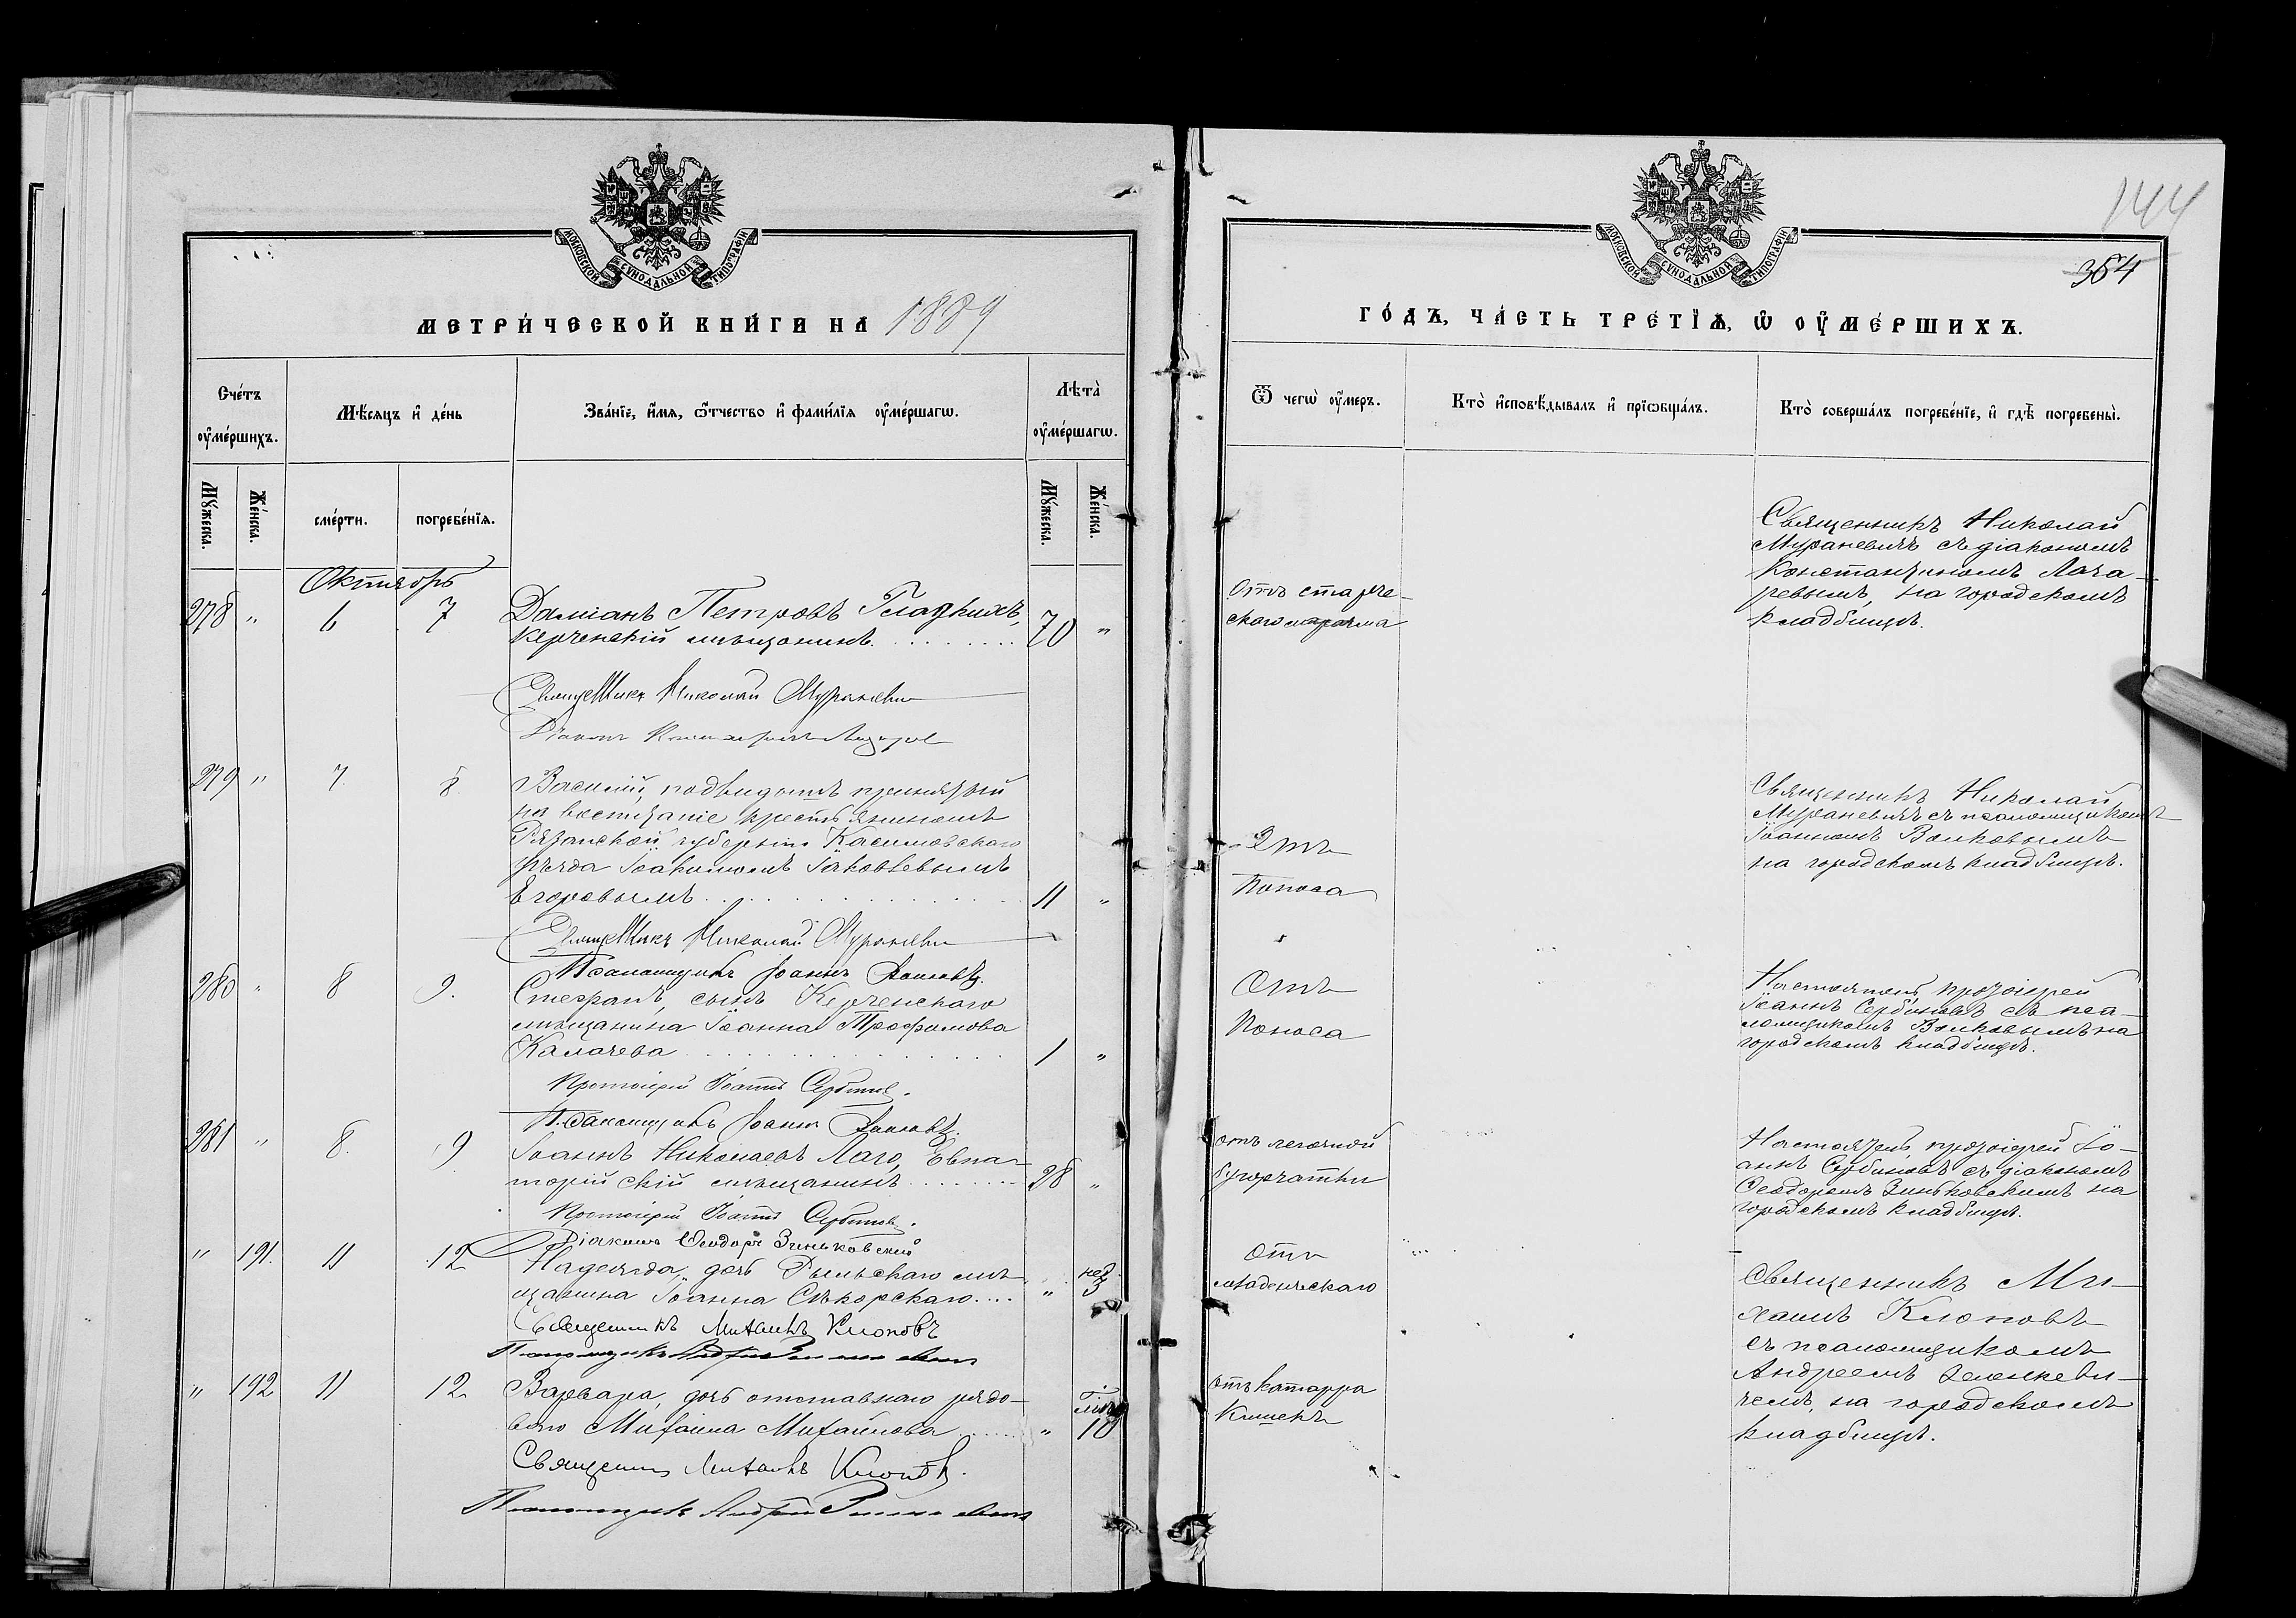 МОСКОВСКОЙ СУНОДАЛЬНОЙ ТИПОГРАФІИ
МЕТРИ́ЧЕСКОЙ КНИ́ГИ НА 1889
Сче́тъ ᲂу҆ме́ршихъ.
Мѣ́сяцъ и҆ де́нь
Зва́нїе, и҆́мя, ѻ҆́тчество и҆ фами́лїя ᲂу҆ме́ршагѡ.
Лѣта̀ ᲂу҆ме́ршагѡ.
Мꙋ́жеска.
Же́нска.
сме́рти.
погребе́нїя.
Мꙋ́жеска.
Же́нска.
Октябрь
278 " 6 7 Даміанъ Петровъ Гладкихъ,
Керченскій мѣщанинъ. 70 "
Священникъ Николай Мураневич
Діаконъ
279 " 7. 8. Василій, подкидышъ принятый
на воспитаніе крестьяниномъ
Рязанской губерніи Касимовскаго
уѣзда Іоакимомъ Іаковлевымъ
Егоровымъ. 11 "
Священникъ Николай Мураневич
Псаломщикъ Іоаннъ Волковъ.
280 " 8 9. Стефанъ, сынъ Керченскаго
мѣщанина Іоанна Трофимова
Калачева 1 "
Протоіерей Іоаннъ Сербинов.
Псаломщикъ Іоаннъ Волковъ.
281 " 8. 9 Іоаннъ Николаевъ Лаго, Евпа-
торійскій мѣщанинъ 28 "
Протоіерей Іоаннъ Сербинов.
Діаконъ Ѳеодоръ Зиньковскій
" 191. 11 12 Надежда, дочь Рыльскаго мѣ-
щанина Іоанна Сѣкорскаго.... " нед. 3
Священникъ Михаилъ Клоповъ
Псаломщикъ Андрей
" 192 11 12 Варвара, дочь отставнаго рядо-
ваго Михаила Михайлова " 10
Священникъ Михаилъ Клоповъ.
Псаломщикъ Андрей
144
364
МОСКОВСКОЙ СУНОДАЛЬНОЙ ТИПОГРАФІИ
ГО́ДЪ, ЧА́СТЬ ТРЕ́ТЇѦ, Ѡ҆ ᲂУ҆МЕ́РШИХЪ.
Ѿ чегѡ̀ ᲂу҆́меръ.
Кто̀ и҆сповѣ́дывалъ и҆ прїѡбща́лъ.
Кто̀ соверша́лъ погребе́нїе, и҆ гдѣ̀ погребены̀.
Отъ старче-
скаго маразма
Священникъ Николай
Мураневичъ съ діакономъ
Константиномъ Лаза-
ревымъ, на городскомъ
кладбищѣ.
Отъ
Поноса
Священникъ Николай
Мураневичъ съ псаломщикомъ
Іоанномъ Волковымъ
на городскомъ кладбищѣ.
Отъ
Поноса
Настоятель протоіерей
Іоаннъ Сербиновъ съ пса-
ломщикомъ Волковымъ на
городскомъ кладбищѣ.
отъ легочной
бугорчатки
Настоятель протоіерей Іо-
аннъ Сербиновъ съ діакономъ
Ѳеодоромъ Зиньковскимъ на
городскомъ кладбищѣ.
Отъ
младенческаго
Священникъ Ми-
хаилъ Клоповъ
съ псаломщикомъ
Андреемъ Зеленкеви-
чемъ, на городскомъ
кладбищѣ.
отъ катарра
Кишекъ